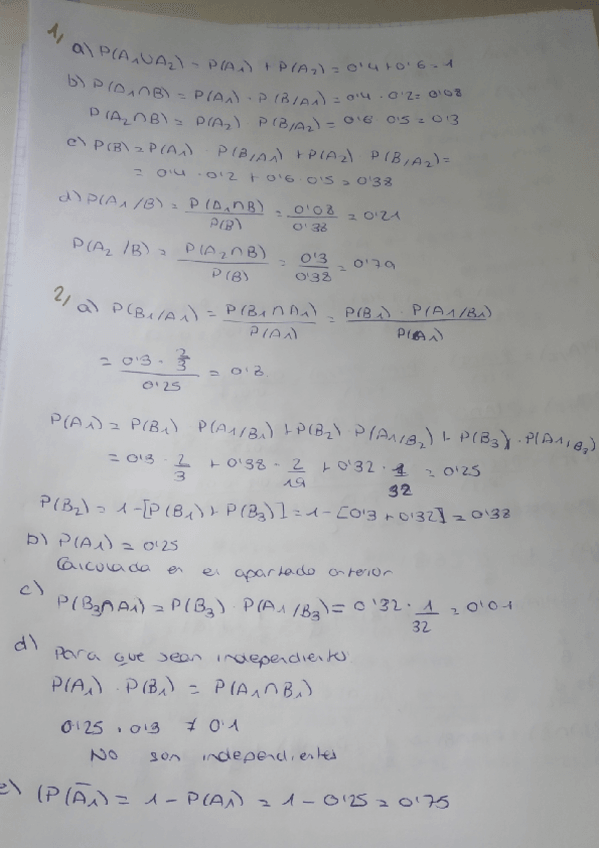 1,
a) P(A1∪A2) = P(A1) + P(A2) = 0'4+0'6 = 1
b) P(A1∩B) = P(A1) · P(B/A1) = 0'4 · 0'2 = 0'08
P(A2∩B) = P(A2) P(B/A2) = 0'6 0'5 = 0'3
c) P(B) = P(A1) · P(B/A1) + P(A2) · P(B/A2) =
= 0'4 · 0'2 + 0'6 · 0'5 = 0'38
d) P(A1/B) = P(A1∩B)/P(B) = 0'08/0'38 = 0'21
P(A2/B) = P(A2∩B)/P(B) = 0'3/0'38 = 0'79
2,
a) P(B1/A1) = P(B1∩A1)/P(A1) = P(B1) · P(A1/B1)/P(A1)
= 0'3 · 2/3 / 0'25 = 0'8
P(A1) = P(B1) · P(A1/B1) + P(B2) · P(A1/B2) + P(B3) · P(A1/B3)
= 0'3 · 2/3 + 0'38 · 2/19 + 0'32 · 1/32 = 0'25
P(B2) = 1 - [P(B1) + P(B3)] = 1 - [0'3 + 0'32] = 0'38
b) P(A1) = 0'25
Calculada en el apartado anterior
c) P(B3∩A1) = P(B3) · P(A1/B3) = 0'32 · 1/32 = 0'01
d) Para que sean independientes
P(A1) · P(B1) = P(A1∩B1)
0'25 · 0'3 ≠ 0'1
No son independientes
e) (P(Ā1) = 1 - P(A1) = 1 - 0'25 = 0'75